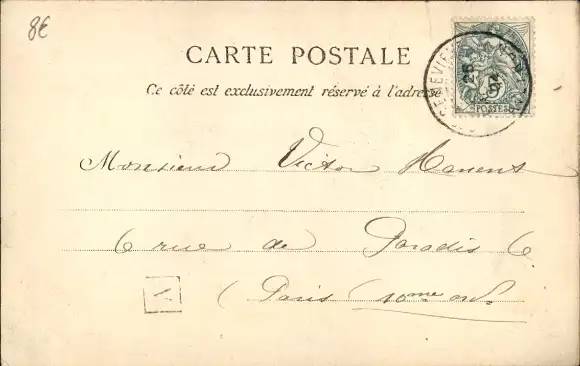 8€
CARTE POSTALE
Ce côté est exclusivement réservé à l'adresse
25
04
POSTES
Monsieur Victor
6 rue de Paradis 6
( Paris 10me
V